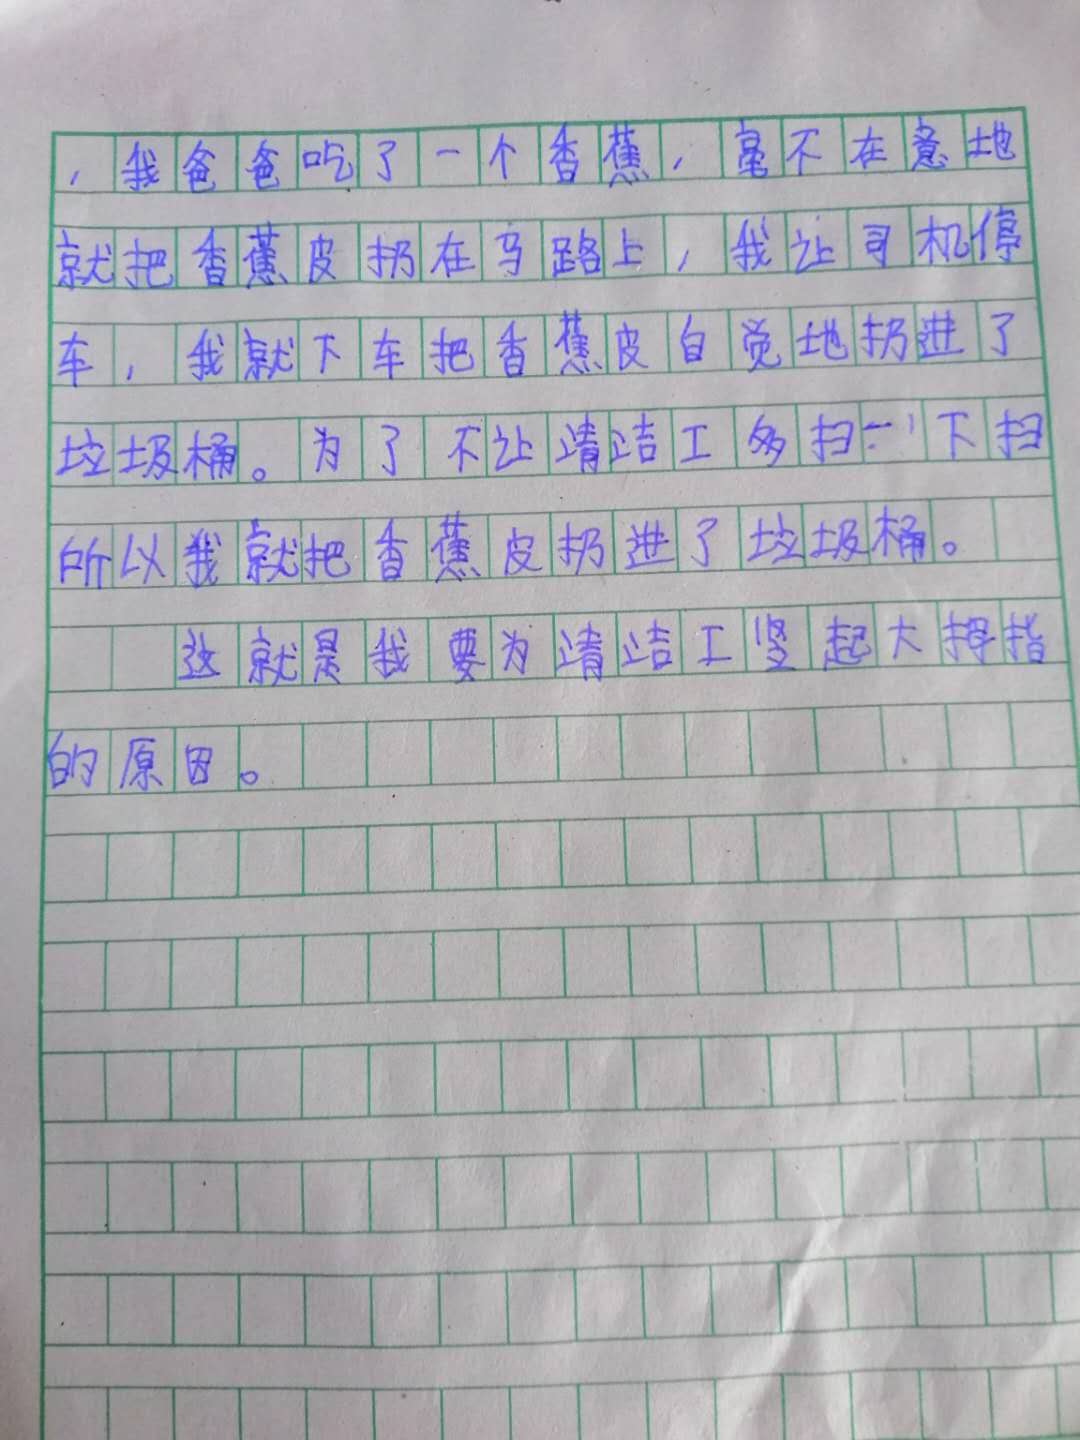 ，我爸爸吃了一个香蕉，毫不在意地
就把香蕉皮扔在马路上，我让司机停
车，我就下车把香蕉皮自觉地扔进了
垃圾桶。为了不让清洁工多扫一下扫
所以我就把香蕉皮扔进了垃圾桶。
这就是我要为清洁工竖起大拇指
的原因。